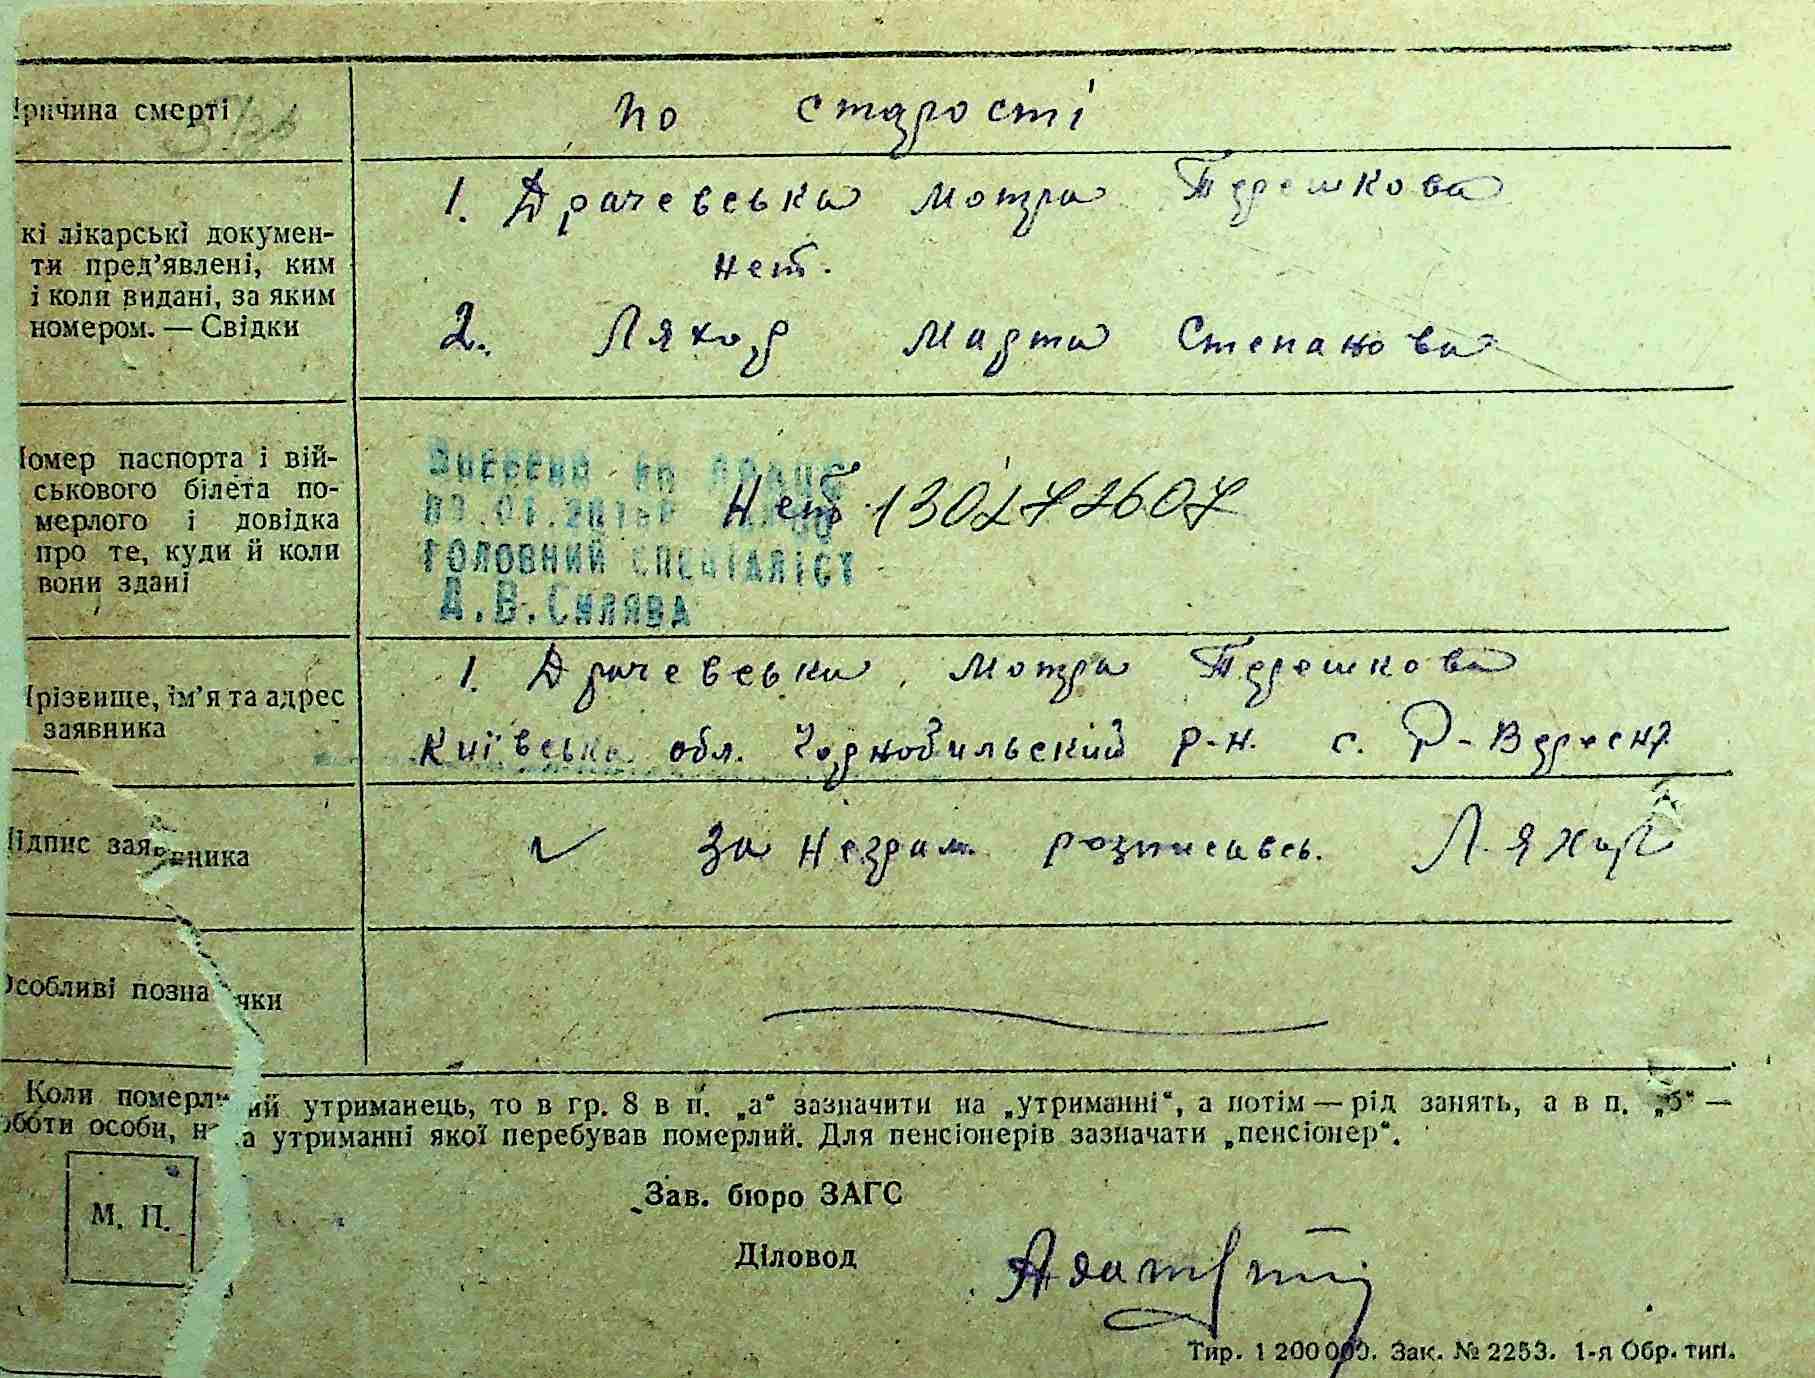 Причина смерті
по старості
кі лікарські докумен-
ти пред'явлені, ким
і коли видані, за яким
номером. — Свідки
1. Драчевська Мотра Терешкова
нет.
2. Ляхор Марта Степанова
Номер паспорта і вій-
ськового білета по-
мерлого і довідка
про те, куди й коли
вони здані
Нет 130272607
ГОЛОВНИЙ СПЕЦІАЛІСТ
Прізвище, ім'я та адрес
заявника
1. Драчевська Мотра Терешкова
Київська обл. Чорнобильский р-н. с. Р-Вересня
Підпис заявника
За незрам. розписавсь. Ляхор
Особливі позначки
Коли померлий утриманець, то в гр. 8 в п. „а“ зазначити на „утриманні“, а потім — рід занять, а в п. „б“ —
оботи особи, на утриманні якої перебував померлий. Для пенсіонерів зазначати „пенсіонер“.
М. П.
Зав. бюро ЗАГС
Діловод
Тир. 1 200 000. Зак. № 2253. 1-я Обр. тип.